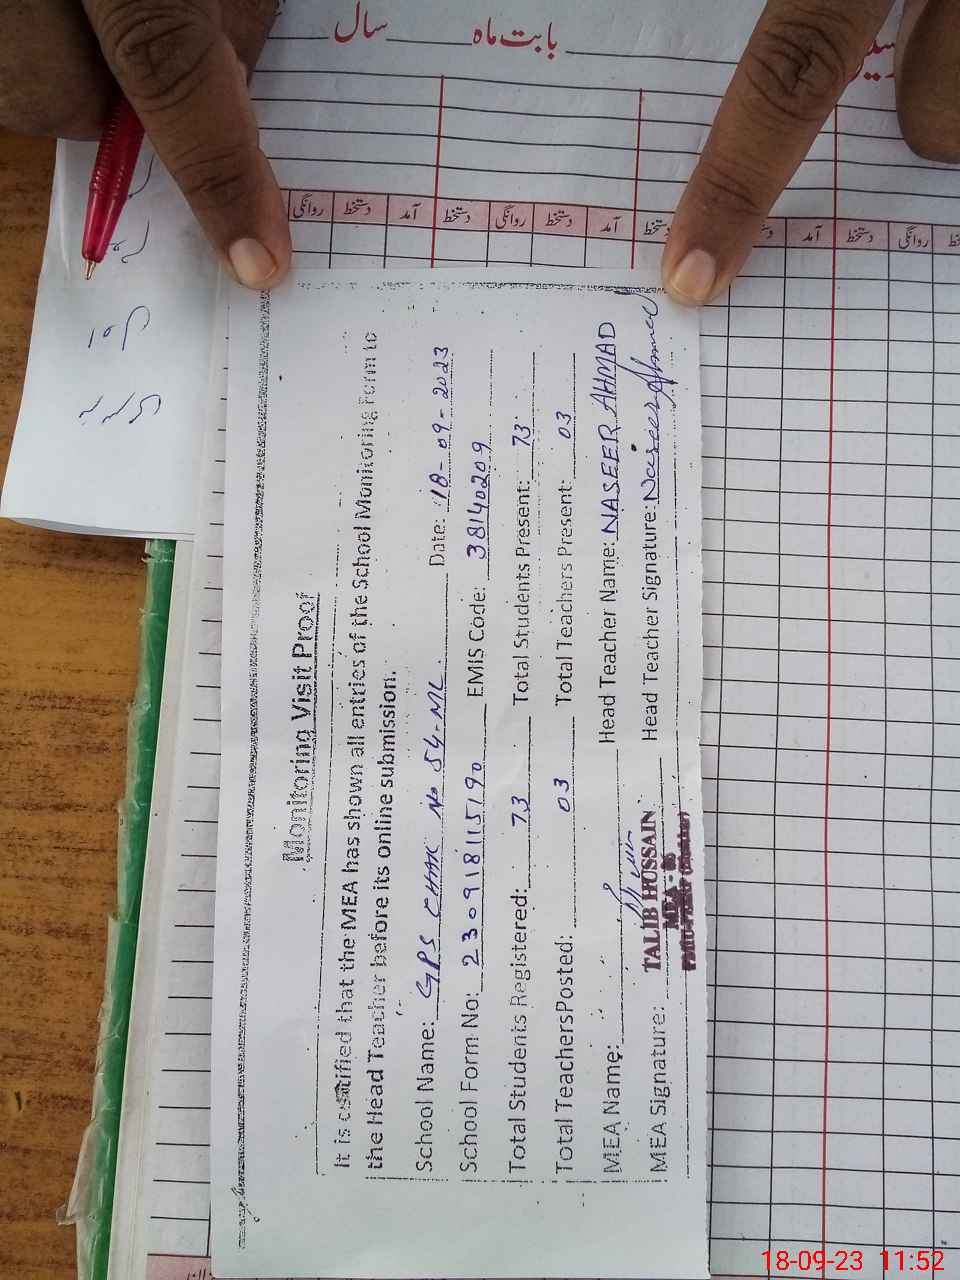 سال بابت ماہ
روانگی دستخط آمد دستخط روانگی دستخط آمد دستخط آمد دستخط روانگی
Monitoring Visit Proof
It is certified that the MEA has shown all entries of the School Monitoring Form to
the Head Teacher before its online submission.
School Name: GPS CHAK No 54-ML Date: 18-09-2023
School Form No: 2309181115190 EMIS Code: 38140209
Total Students Registered: 73 Total Students Present: 73
Total TeachersPosted: 03 Total Teachers Present: 03
MEA Name: Head Teacher Name: NASEER AHMAD
MEA Signature: Head Teacher Signature: Naseer Ahmed
TALIB HUSSAIN
MEA -
18-09-23 11:52